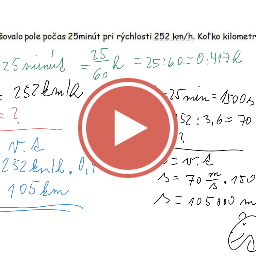 šovalo pole počas 25minút pri rýchlosti 252 km/h. Koľko kilometr
25 minút = 25/60 h = 25:60 = 0,417 h
= 252 km/h
= ?
v.t
252 km/h . 0,4
105 km
= 25 min = 1500s
252 : 3,6 = 70
?
s = v.t
s = 70 m/s . 150
s = 105000 m